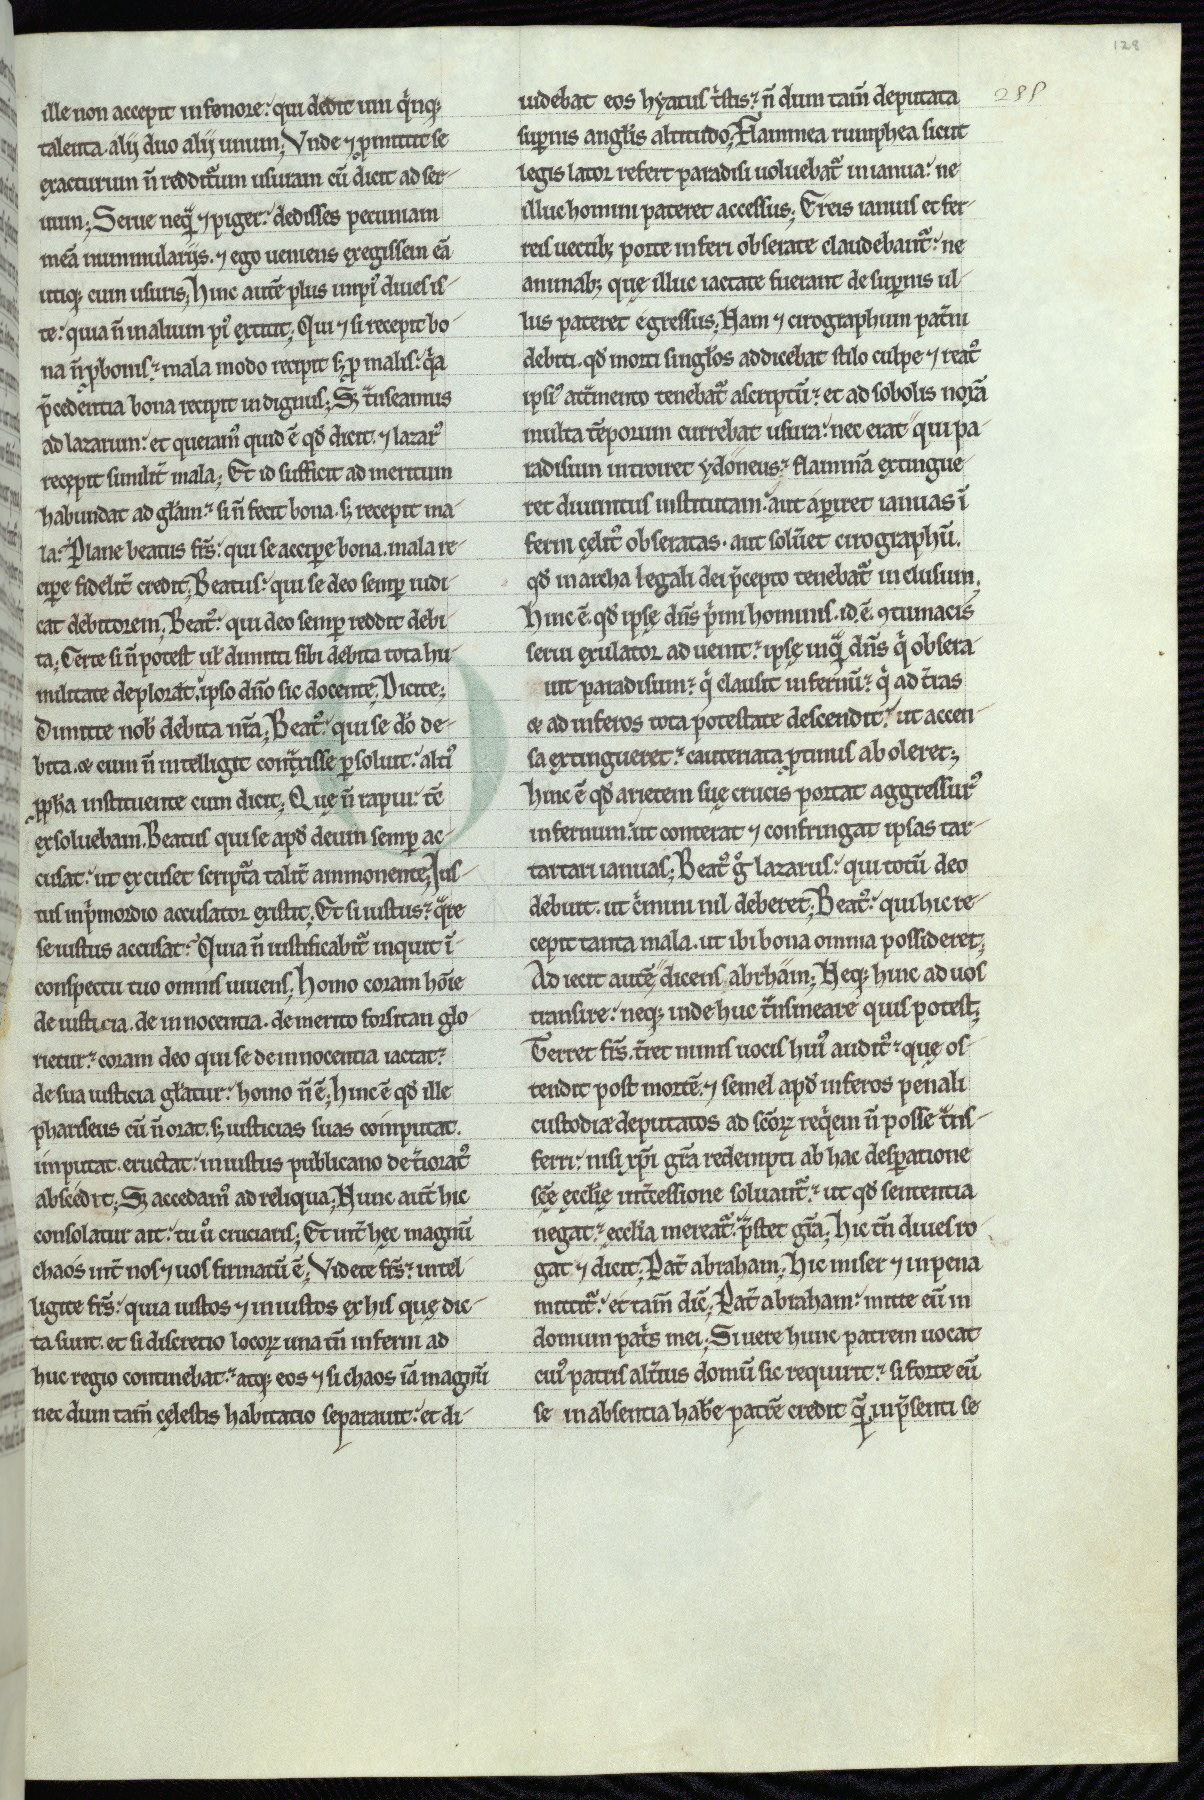 128
285
ille non accepit in fenore: qui dedit uni q̇nq;
talenta. alij duo alij unum; Vnde ⁊ p̱mittit se
exacturum ñ reddit̃um usuram cũ dicit ad ser-
uum; Serue neq̃ ⁊ piger: dedisses pecuniam
meã nummularijs. ⁊ ego ueniens exegissem eã
utiq; cum usuris; Hinc autẽ plus impi᷒ diues is-
te: quia ñ in alium pi᷒ extitit; Qui ⁊ si recepit bo-
na ñ p̱ bonis: mala modo recipit sȝ p̱ malis: q̇a
p̃cedentia bona recipit indignus; Sȝ t̃nseamus
ad lazarum: et queram᷒ quid ẽ qd̃ dicit ⁊ lazar᷒
recepit similit̃ mala; Et id sufficit ad meritum
habundat ad gl̃am: si ñ fecit bona. sȝ recepit ma-
la: Plane beatus fr̃s: qui se accip̱e bona. mala re-
cip̱e fidelit̃ credit; Beatus: qui se deo semp̱ iudi-
cat debitorem; Beat᷒: qui deo semper reddit debi-
ta; Certe si ñ potest uel dimitti sibi debita tota hu-
militate deplorat, ipso dño sic docente; Dicite;
Dimitte nob̃ debita nr̃a; Beat᷒: qui se dõ de-
bita. & cum ñ intelligit cont̃xisse p̱soluit: alti᷒
pp̃ha instituente cum dicit; Quę ñ rapui: tc̃
exsoluebam. Beatus qui se apd̃ deum semp̱ ac-
cusat: ut excuset script̃a talit̃ ammonente; Jus-
tus inp̃mordio accusator existit; Et si iustus: q̃re
se iustus accusat: Quia ñ iustificabit̃ inquit ĩ
conspectu tuo omnis uiuens; Homo coram hoĩe
de iusticia. de innocentia. de merito forsitan glo-
rietur: coram deo qui se de innocentia iactat:
de sua iusticia gl̃atur: homo ñ ẽ; Hinc ẽ qd̃ ille
phariseus cũ ñ orat. sȝ iusticias suas computat.
imputat. eructat: iniustus publicano det̃iorat᷒
abscedit; Sȝ accedam᷒ ad reliqua; Nunc aut̃ hic
consolatur ait: tu u᷒ cruciaris; Et int̃ hęc magnũ
chaos int̃ nos ⁊ uos firmatũ ẽ; Videte fr̃s: intel-
ligite fr̃s: quia iustos ⁊ iniustos ex his quę dic-
ta sunt. et si discretio locoꝝ una tñ inferni ad
huc regio continebat: atq; eos ⁊ si chaos iã magnũ
nec dum tam̃ cęlestis habitatio separauit: et di-
uidebat eos hyatus t̃stis: ñ dum tam̃ deputata
sup̱nis angl̃is altitudo; Flammea rumphea sicut
legis lator refert paradisi uoluebat̃ in ianua: ne
illuc homini pateret accessus; Ereis ianuis et fer-
reis uectib; porte inferi obserate claudebant̃: ne
animab; quę illuc iactate fuerant de sup̱nis ul-
lus pateret egressus; Nam ⁊ cirographum pat̃ni
debiti. qd̃ morti singl̃os addicebat stilo culpe ⁊ reat᷒
ipsi᷒ at̃mento tenebat̃ ascriptũ: et ad sobolis noxã
multa tẽporum currebat usura: nec erat qui pa-
radisum introiret ydoneus: flammã extingue-
ret diuinitus institutam. aut ap̱iret ianuas ĩ-
ferni cęlit᷒ obseratas. aut solũet cirographũ.
qd̃ in archa legali dei p̃cepto tenebat̃ inclusum.
Hinc ẽ. qd̃ ipsę dñs p̃mi hominis. id ẽ. ꝯtumacis
serui exulator aduenit: ipsę inq̃ dñs q̇ obsera-
uit paradisum: q̇ clausit infernũ: q̇ ad t̃ras
& ad inferos tota potestate descendit: ut accen-
sa extingueret: cauteriata p̱tinus aboleret;
Hinc ẽ qd̃ arietem suę crucis portat aggressur᷒
infernum: ut conterat ⁊ confringat ipsas tar-
tartari ianuas; Beat᷒ g̊ lazarus: qui totũ deo
debuit. ut c̃mini nil deberet; Beat᷒: qui hic re-
cepit tanta mala. ut ibi bona omnia possideret;
Adiecit autẽ dicens abrham; Neq; hinc ad uos
transire: neq; inde huc t̃nsmeare quis potest;
Terret fr̃s. t̃ret nimis uocis hui᷒ audit᷒: quę os-
tendit post mortẽ. ⁊ semel apd̃ inferos penali
custodiæ deputatos ad sc̃oꝝ req̇em ñ posse t̃ns-
ferri: nisi xp̃i gr̃a redempti ab hac desp̱atione
sc̃ę eccl̃ię int̃cessione soluant̃: ut qd̃ sententia
negat: eccl̃ia mereat̃. p̃stet gr̃a; Hic tñ diues ro-
gat ⁊ dicit; Pat̃ abraham; Hic miser ⁊ in pena
mittit̃: et tam̃ dic̃; Pat̃ abraham: mitte eũ in
domum pat̃s mei; Si uere hunc patrem uocat
cui᷒ patris alt̃ius domũ sic requirit: si forte eũ
se in absentia hab̃e patrẽ credit q̃ in p̃senti se